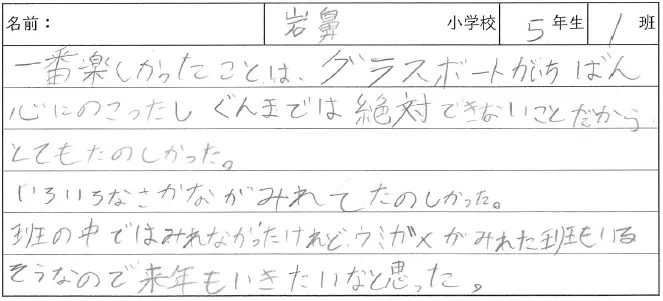 名前： 岩鼻 小学校 5 年生 1 班
一番楽しかったことは、グラスボートがいちばん
心にのこったし ぐんまでは絶対できないことだから
とてもたのしかった。
いろいろなさかながみれてたのしかった。
班の中ではみれなかったけれど、ウミガメがみれた班もいる
そうなので来年もいきたいなと思った。